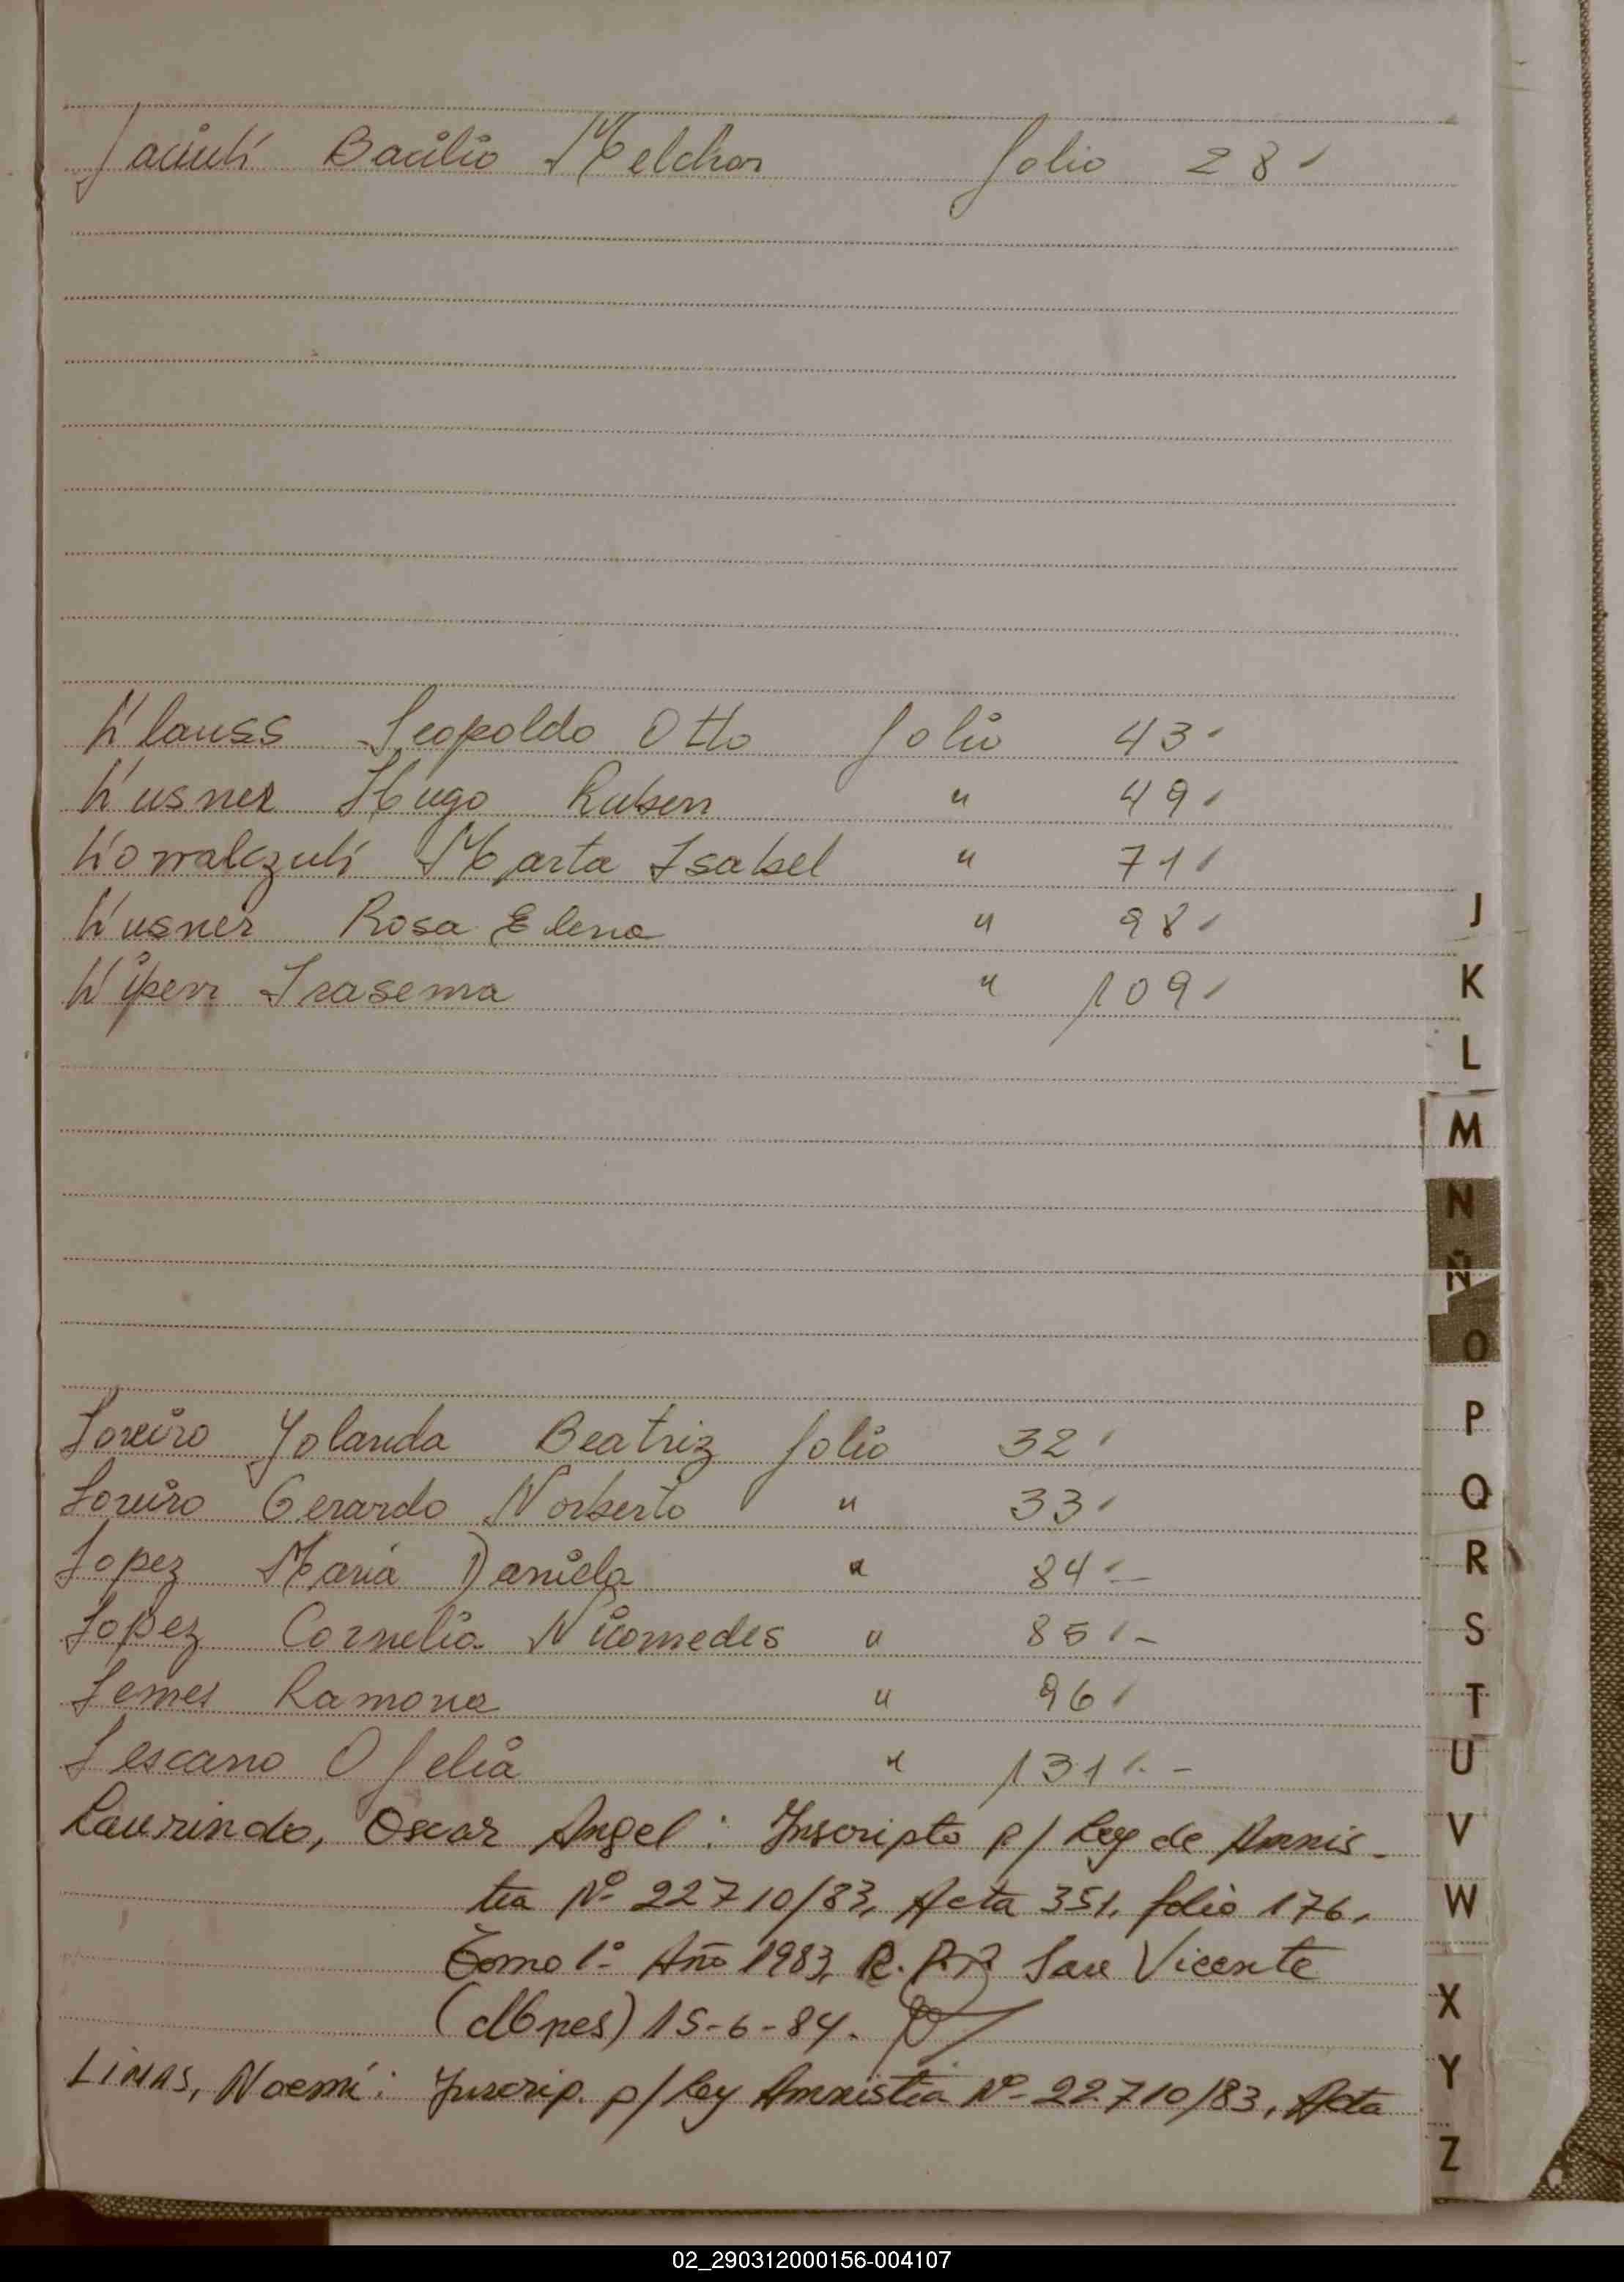 Jacinti Bacilio Melchor folio 28
Klauss Leopoldo Otto folio 43
Kusner Hugo Ruben " 49
Kowalczuk Marta Isabel " 71
Kusner Rosa Elena " 98
Kipen Irasema " 109
Loreiro Yolanda Beatriz folio 32
Loreiro Gerardo Norberto " 33
Lopez Maria Daniela " 84 -
Lopez Cornelia Nicomedes " 85 -
Lemes Ramona " 96
Lescano Ofelia " 131 -
Laurindo, Oscar Angel: Inscripto p/ Ley de Amnis-
tia Nº 22710/83, Acta 351, folio 176,
Tomo 1º Año 1983, R.P.P. San Vicente
(Mnes) 15-6-84.
LIMAS, Noemí: Inscrip. p/ Ley Amnistia Nº 22710/83, Acta
J
K
L
M
N
Ñ
O
P
Q
R
S
T
U
V
W
X
Y
Z
02_290312000156-004107